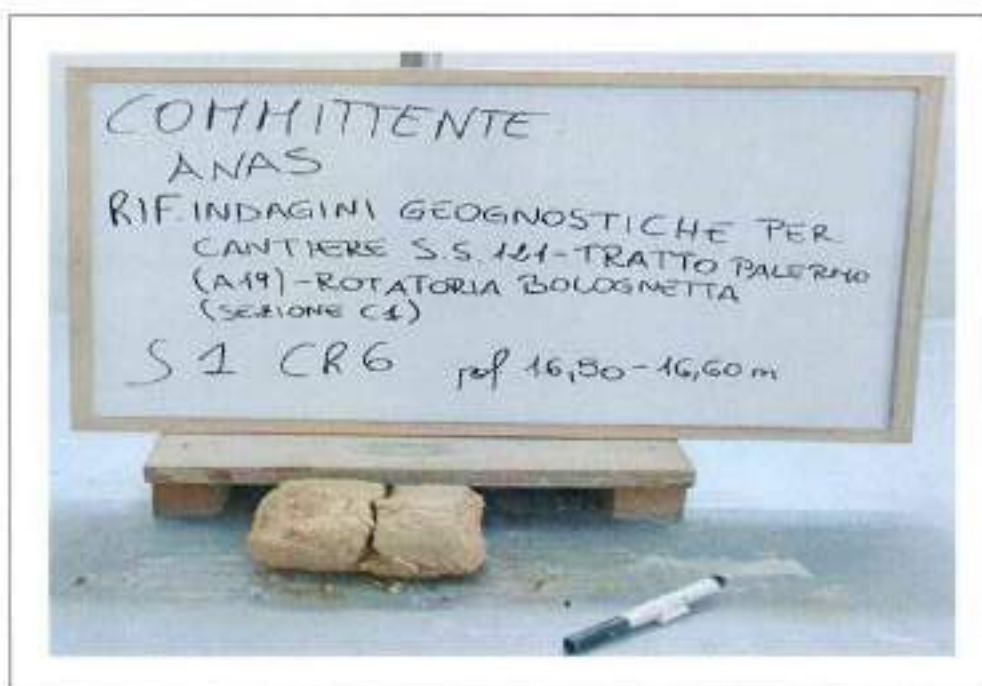 COMMITTENTE
ANAS
RIF. INDAGINI GEOGNOSTICHE PER
CANTIERE S.S. 121-TRATTO PALERMO
(A19)-ROTATORIA BOLOGNETTA
(SEZIONE C1)
S1 CR6 prof 16,50-16,60 m